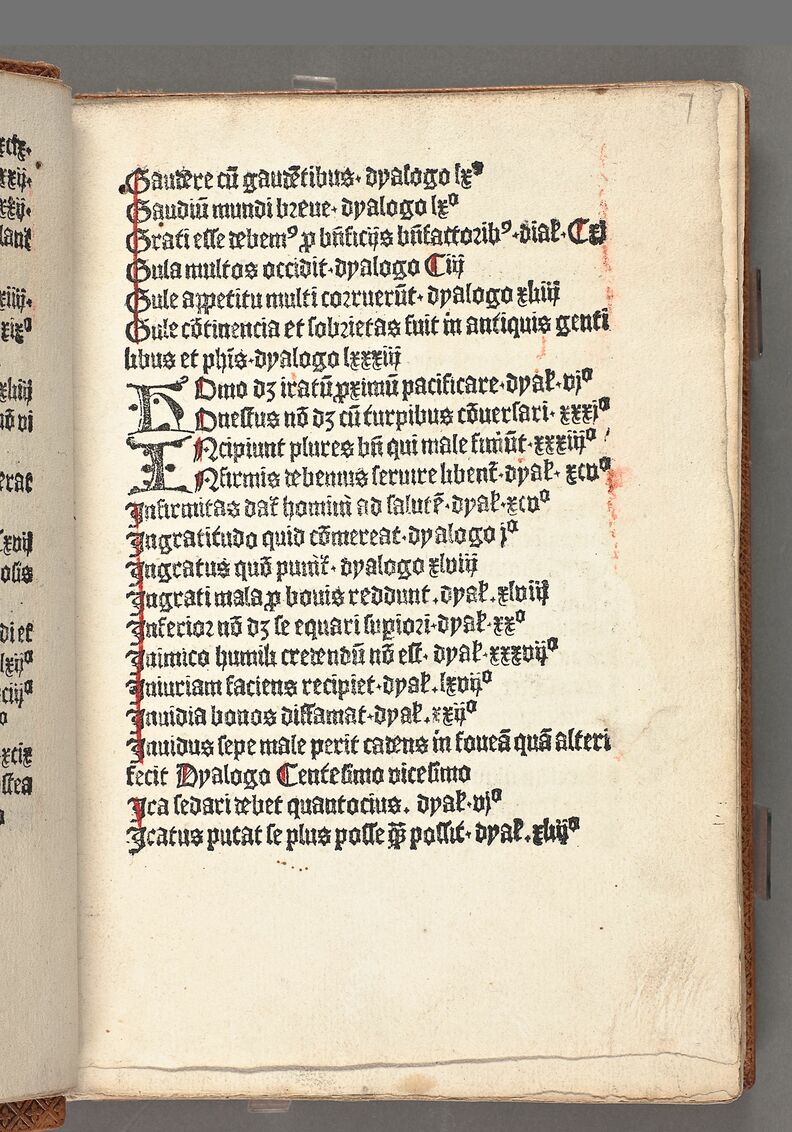 7
xcix.
xxij.
xxij.
xiiij.
xixº
xliiij
nō vi
erat
Lxvij
di et
lxijº
ciijº
xcix
Gaudēre cū gaudētibus. dyalogo lxꝰ
Gaudiū mundi breue. dyalogo lxº
Grati esse debemꝰ ꝓ bn̄ficijs bn̄factoribꝰ. diaƚ. Cxi
Gula multos occidit. dyalogo Ciij
Gule appetitu multi corruerūt. dyalogo xliiij
Gule cōtinencia et sobrietas fuit in antiquis genti
libus et phīs. dyalogo lxxxiij
HOmo dꝫ iratū ꝓximū pacificare. dyaƚ. vjº
HOnestus nō dꝫ cū turpibus cōuersari. xxxjº
INcipiunt plures bn̄ qui male finiūt. xxxiijº
INfirmis debemus seruire libent̄. dyaƚ. xcvº
Infirmitas daƭ homini ad salutē. dyaƚ. xcvº
Ingratitudo quid cōmereat. dyalogo jº
Ingratus quō puniƭ. dyalogo xlviij
Ingrati mala ꝓ bonis reddunt. dyaƚ. xlviij
Inferior nō dꝫ se equari suꝑiori. dyaƚ. xxº
Inimico humili credendū nō est. dyaƚ. xxxvijº
Iniuriam faciens recipiet. dyaƚ. lxvijº
Inuidia bonos diffamat. dyaƚ. xxijº
Inuidus sepe male perit cadens in foueā quā alteri
fecit Dyalogo Centesimo vicesimo
Ira sedari debet quantocius. dyaƚ. vjº
Iratus putat se plus posse ꝙ̄ possit. dyaƚ. xliijº